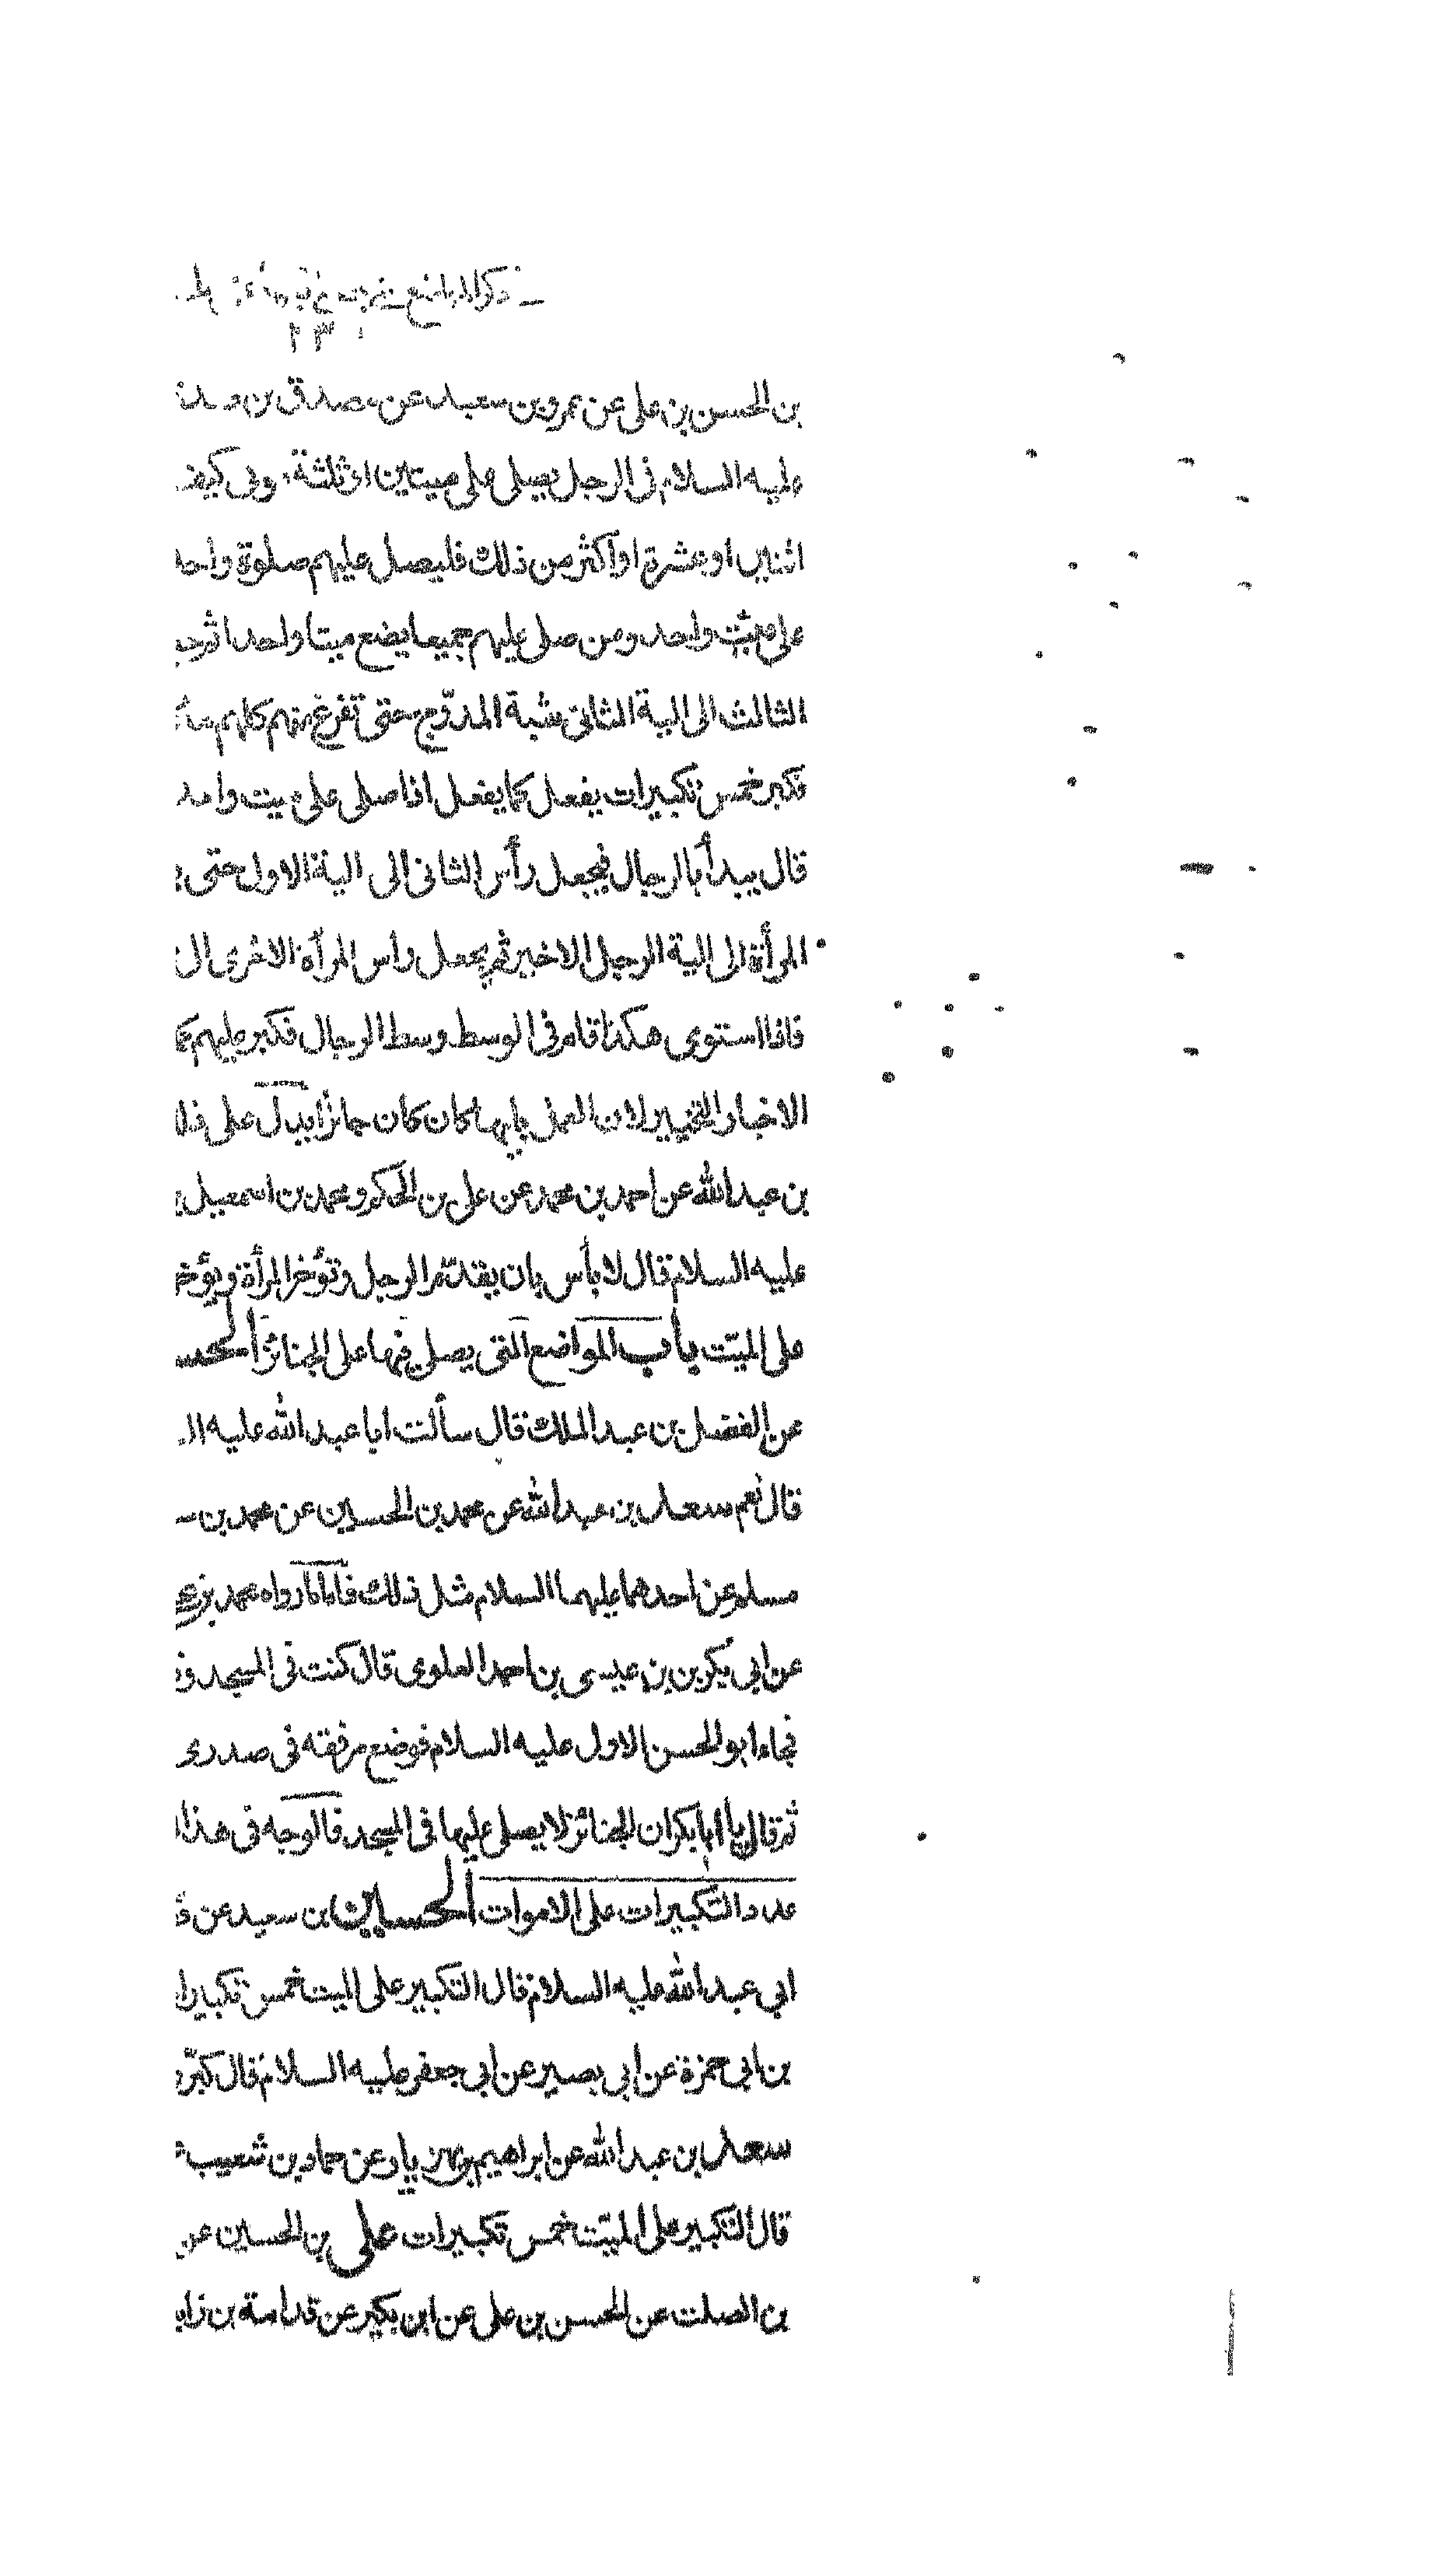 بن الحسن بن على عن عمرو بن سعيد عن مصدق بن
عليه السلام فى الرجل يصلى على ميتين او ثلثة موتى كيف
اثنين او عشرة او اكثر من ذلك فليصل عليهم صلوة واحد
على ميت واحد ومن صلى عليهم جميعا يضع ميتا واحدا ثم
الثالث الى الية الثانى شبة المدرّج حتى تفرغ منهم كلهم
فكبر خمس تكبيرات يفعل كما يفعل اذا صلى على ميت واحد
قال يبدأ بالرجال فيجعل رأس الثانى الى الية الاول حتى
المرأة الى الية الرجل الاخير ثم يجعل راس المرأة الاخرى ال
فاذا استوى هكذا قام فى الوسط وسط الرجال فكبر عليهم
الاخبار التخيير لان العمل بايها كان كان جائزا يدل على ذل
بن عبد الله عن احمد بن محمد عن على بن الحكم ومحمد بن اسمعيل
عليه السلام قال لا بأس بان يقدّم الرجل وتؤخر المرأة ويؤخر
على الميّت باب المواضع التى يصلى فيها على الجنائز الحس
عن الفضل بن عبد الملك قال سألت ابا عبد الله عليه ال
قال نعم سعد بن عبد الله عن محمد بن الحسين عن محمد بن
مسلم عن احدهما عليهما السلام مثل ذلك فاما ما رواه محمد بن
عن ابى بكر بن عيسى بن احمد العلوى قال كنت فى المسجد
فجاء ابو الحسن الاول عليه السلام فوضع مرفقه فى صدرى
ثم قال يا ابا بكر ان الجنائز لا يصلى عليها فى المسجد فالوجه فى هذا
عدد التكبيرات على الاموات الحسين بن سعيد عن
ابي عبد الله عليه السلام قال التكبير على الميت خمس تكبيرا
بن ابى حمزة عن ابى بصير عن ابى جعفر عليه السلام قال كبّر
سعد بن عبد الله عن ابراهيم بن مهزيار عن حماد بن شعيب
قال التكبير على الميّت خمس تكبيرات على بن الحسين عن
بن الصلت عن الحسن بن على عن ابن بكير عن قدامة بن زاي